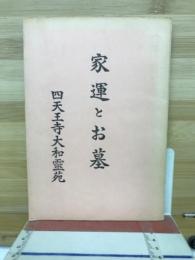 家運とお墓
四天王寺大和霊苑